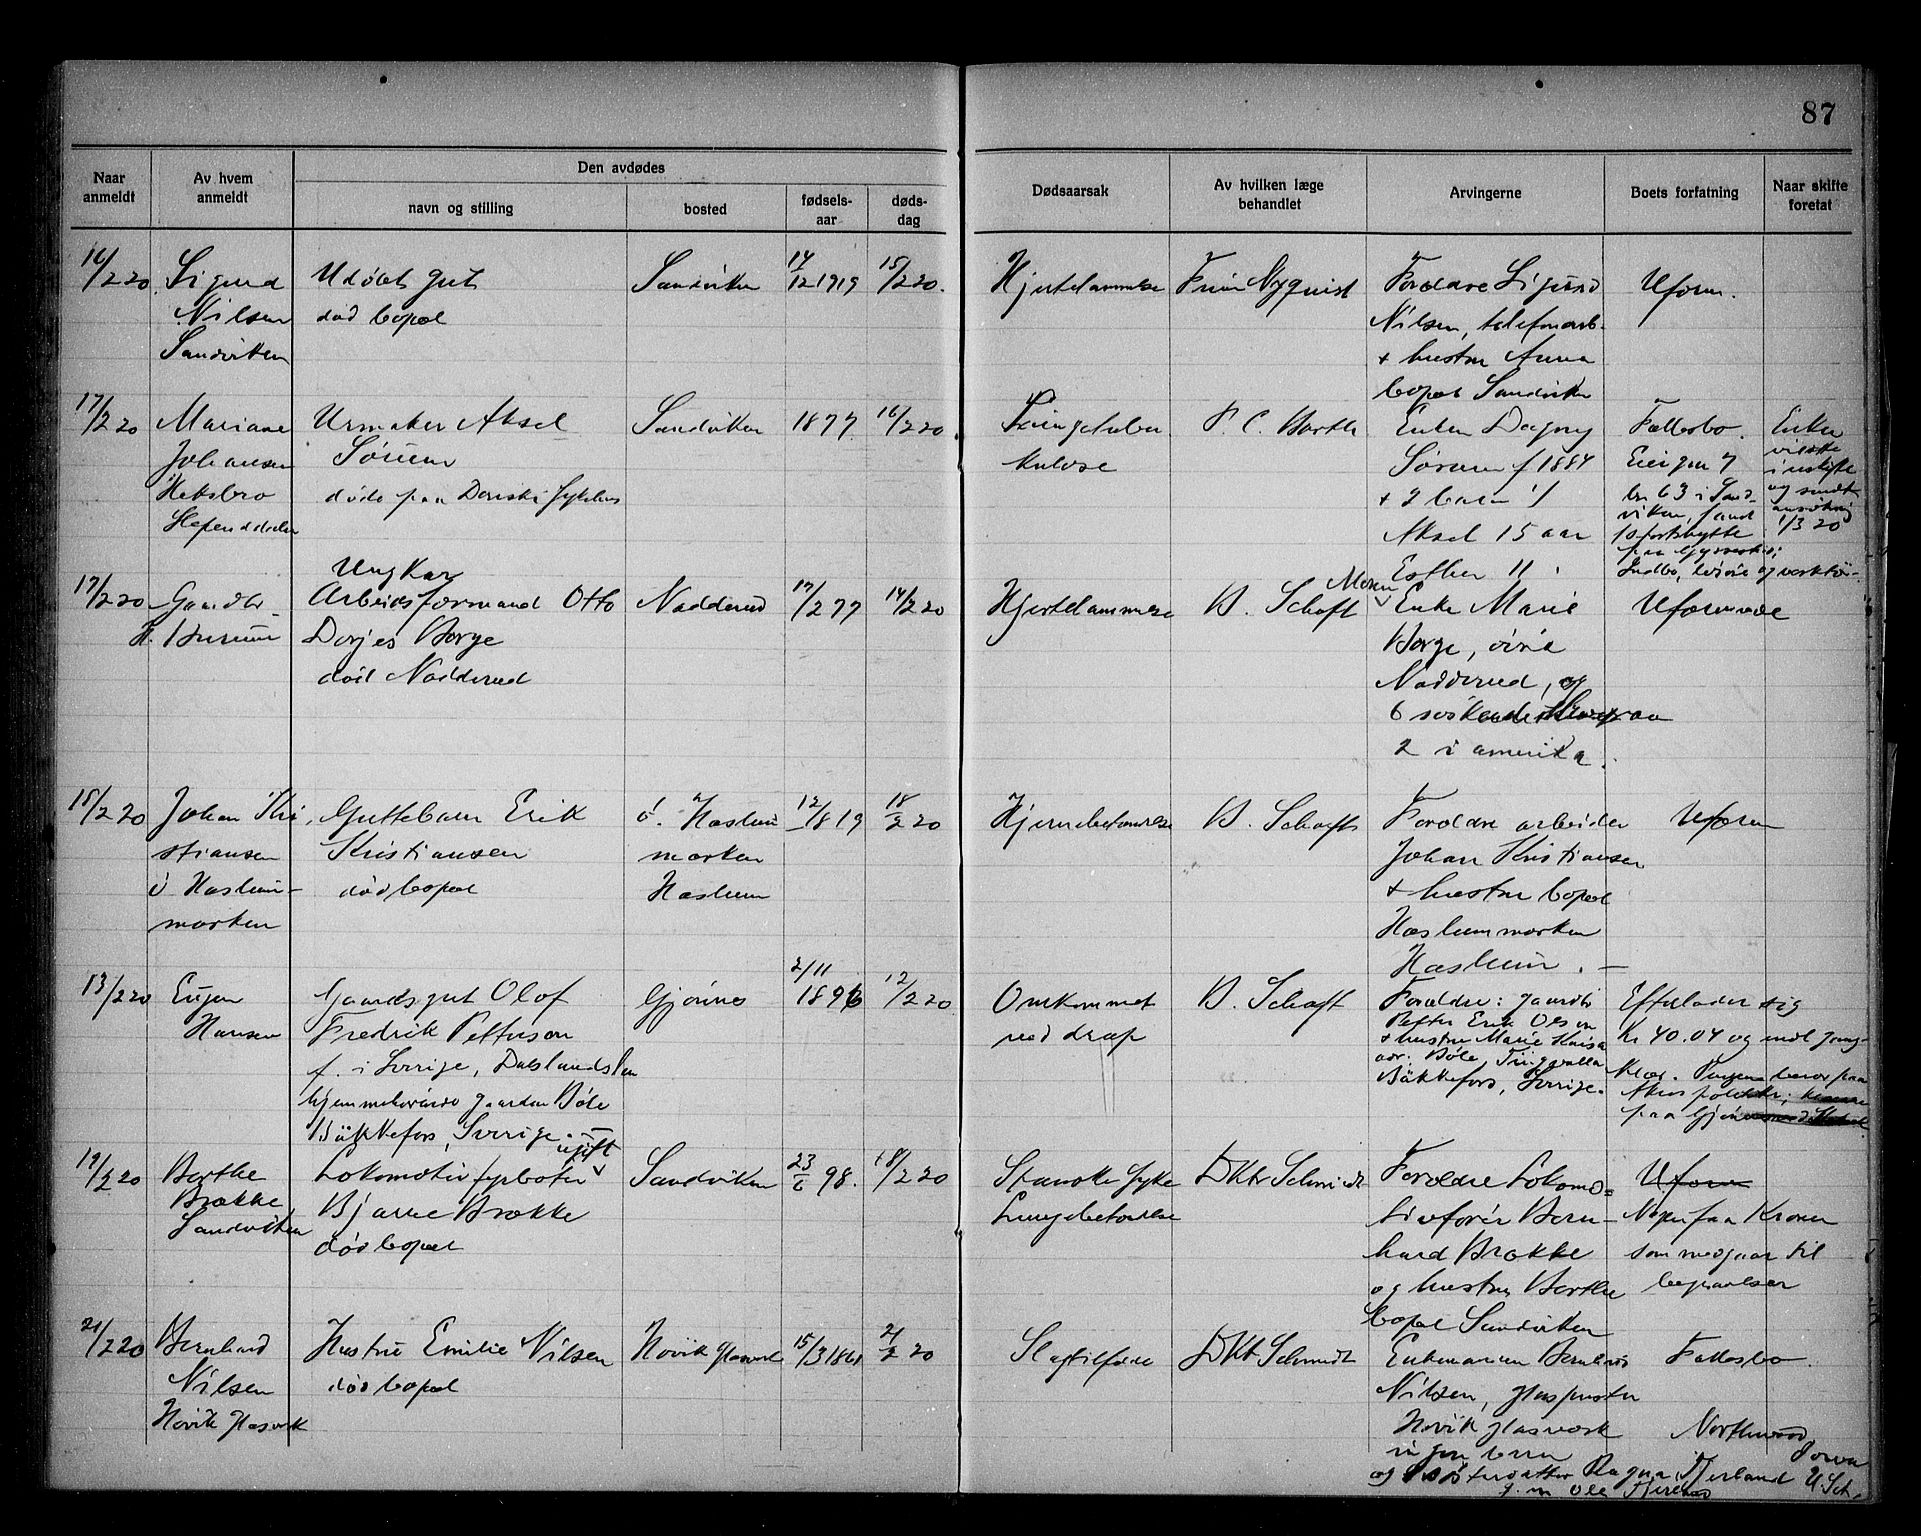 87
Naar anmeldt
Av hvem anmeldt
Den avdødes
navn og stilling
bosted
fødsels-aar
døds-dag
Dødsaarsak
Av hvilken læge behandlet
Arvingerne
Boets forfatning
Naar skifte foretat
16/2 20
Sigurd
Nilsen
Sandviken
Udøbt gut
død bopæl
Sandviken
14/12 1919
15/2 20.
Hjertelammelse
Nyquist
Forældre Sigurd
Nilsen, telefonarb.
+ hustru Anna
bopæl Sandviken
Uform.
17/2 20
Mariane
Johansen
Urmaker Aksel
Sørum
døde paa Sykehus
Sandviken
1877
16/2 20
Lungetuber
kulose
Enken Dagny
Sørum f 1884
+ 2 barn :/
Aksel 15 aar
Esther 11 "
Fællesbo.
Eier gnr 7
bnr 63 i Sand-
viken, samt
Indbo, løsøre og
Enken
i uskifte
og sendt
ansøkning
1/3 20
17/2 20
Gaardbr.
Ungkar
Arbeidsformand Otto
Dorjes Borge
død Nadderud
Nadderud
17/2 77
14/2 20
Hjertelammelse
B. Schøft
Moren
Enke Marie
Borge, øvre
Nadderud, og
6 søskende
2 i amerika.
Uformuende
18/2 20
Johan Kri
stiansen
ø Haslum-
marken
Guttebarn Erik
Kristiansen
død bopæl
ø. Haslum
marken
Haslum
12/8 19
18/2 20
Hjernebetændelse
B. Schøft
Forældre arbeider
Johan Kristiansen
+ hustru bopæl
Haslummarken
Haslum. —
Uform
13/2 20
Eugen
Hansen
Gaardsgut Olof
Fredrik Petterson
f. i Sverige, Dalslands len
hjemmehørende gaarden Böle
Bäkkefors, Sverige. —
Gjønnes
2/11
1896
12/2 20
Omkommet
ved drap
B. Schøft
Forældre: gaardbr
Petter Erik Olson
+ hustru Marie
adr: Böle, Tingvalla
Bäkkefors, Sverige.
Efterlader sig
Kr 40.04 og endl gang-
klær. Pengene beror paa
Akers politikk;
paa
19/2 20
Berthe
Brække
Sandviken
ugift
Lokomotivfyrbøter
Bjarne Brække
død bopæl
Sandviken
23/6 98.
18/2 20
Spanske syke
Lungebetændelse
Dktr Schmidt
Forældre Lokomo=
tivfører Bern-
hard Brække
og hustru Berthe
bopæl Sandviken
Uform
Noen faa Kroner
som medgaar til
begravelsen
21/2 20
Bernhard
Nilsen
Høvik Glasverk
Hustru Emilie Nilsen
død bopæl
Høvik Glasverk
15/3 1861
21/2 20
Slagtilfælde
Dktr Schmidt
Enkemanden Bernhard
Nilsen, glaspuster
Høvik glasværk
ingen barn
og Søsterdatter Ragna Fjerland
g. m. Ole Fjerland
Fællesbo.
Northwood
Iowa